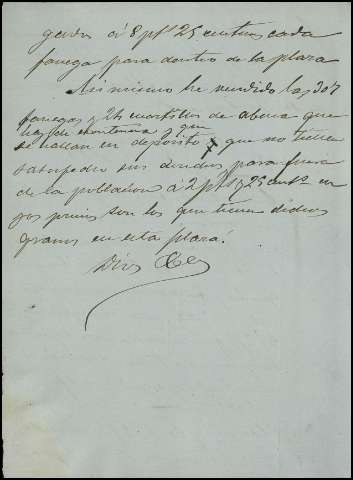 gados á 8 pts 25 centimos cada
fanega para dentro de la plaza
Asi mismo he vendido las 307
fanegas y 24 cuartillos de abena que
hay de existencia y que
se hallan en deposito y que no tienen
satisfecho sus derechos para fuera
de la poblacion á 2 pts y 25 cents cu
yos precios son los que tienen dichos
granos en esta plaza.
Dios